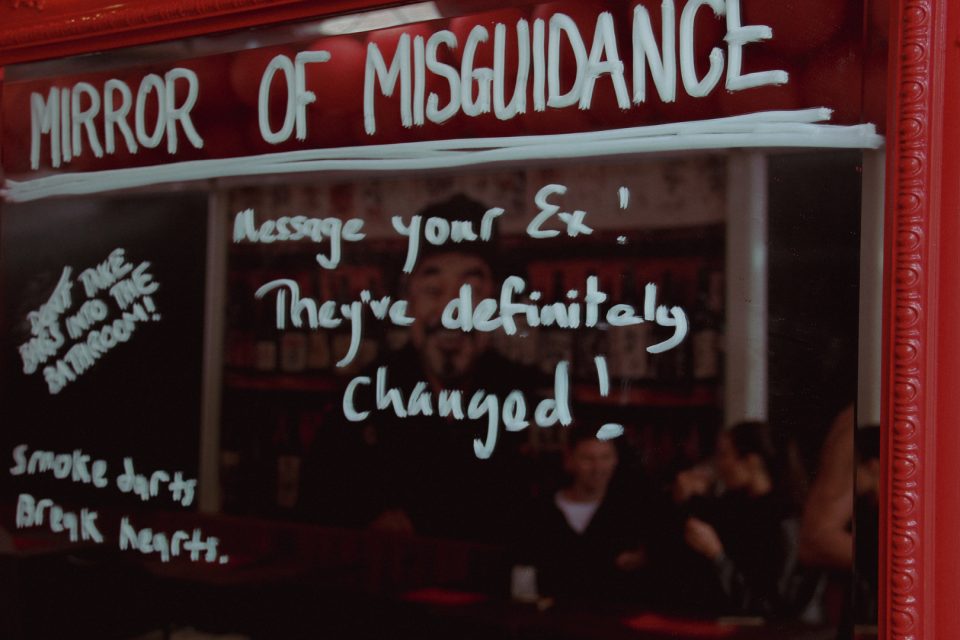 MIRROR OF MISGUIDANCE
Message your Ex!
They've definitely
changed!
DON'T TAKE
INTO THE
BATHROOM!!
Smoke darts
Break hearts.